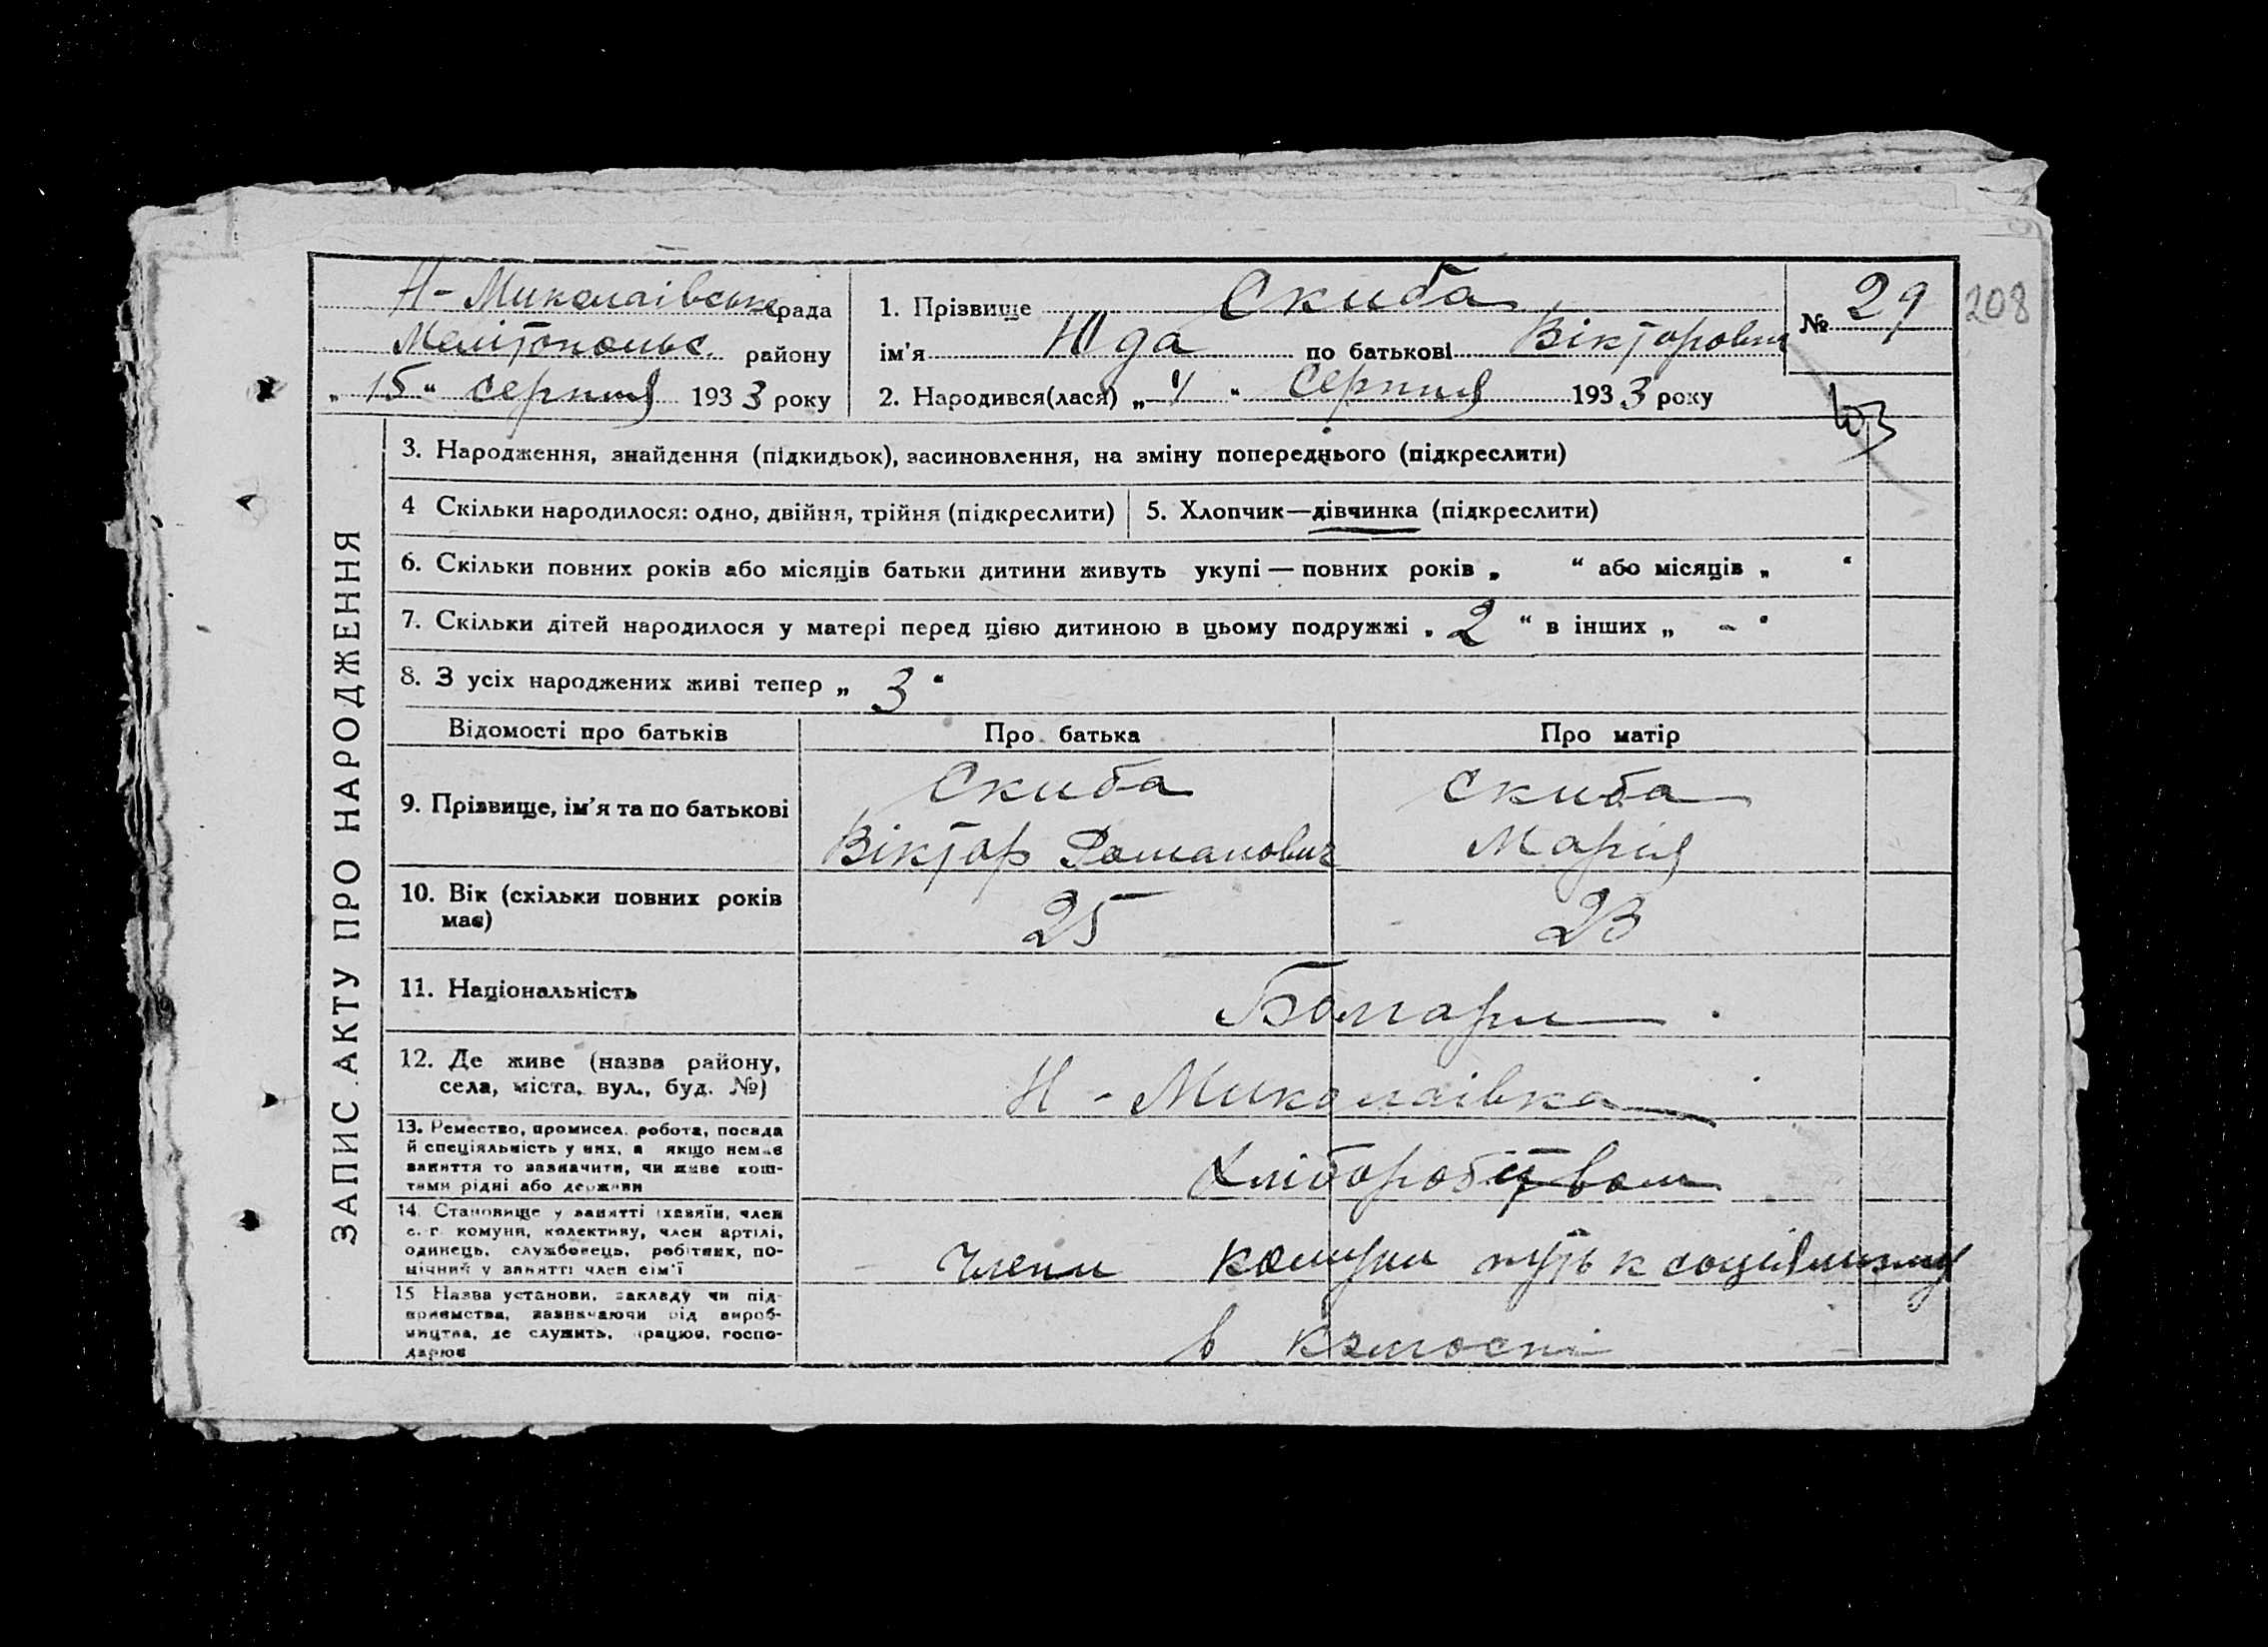 Н-Миколаівська рада
Мелітопольс. району
„ 15 “ серпня 1933 року
1. Прізвище Скиба
ім'я Юда по батькові Вікторовна
2. Народився(лася) „ 1 “ Серпня 1933 року
№ 29
208
ЗАПИС АКТУ ПРО НАРОДЖЕННЯ
3. Народження, знайдення (підкидьок), засиновлення, на зміну попереднього (підкреслити)
4 Скільки народилося: одно, двійня, трійня (підкреслити)
5. Хлопчик—дівчинка (підкреслити)
6. Скільки повних років або місяців батьки дитини живуть укупі — повних років „ “ або місяців „ “
7. Скільки дітей народилося у матері перед цією дитиною в цьому подружжі „ 2 “ в інших „ - “
8. З усіх народжених живі тепер „ 3 “
Відомості про батьків
Про батька
Про матір
9. Прізвище, ім'я та по батькові
Скиба
Віктор Романович
Скиба
Марія
10. Вік (скільки повних років
має)
25
23
11. Національність
Болгари
12. Де живе (назва району,
села, міста, вул., буд. №)
Н - Миколаівка
13. Ремество, промисел, робота, посада
й спеціяльність у них, а якщо немає
заняття то зазначити, чи живе кош-
тами рідні або держави
14. Становище у занятті (хазяїн, член
с.-г. комуни, колективу, член артілі,
одинець, службовець, робітник, по-
мічний у занятті член сім'ї
Члени комуни путь к социализму
15 Назва установи, закладу чи під-
приємства, зазначаючи рід вироб-
ництва, де служить, працює, госпо-
дарює